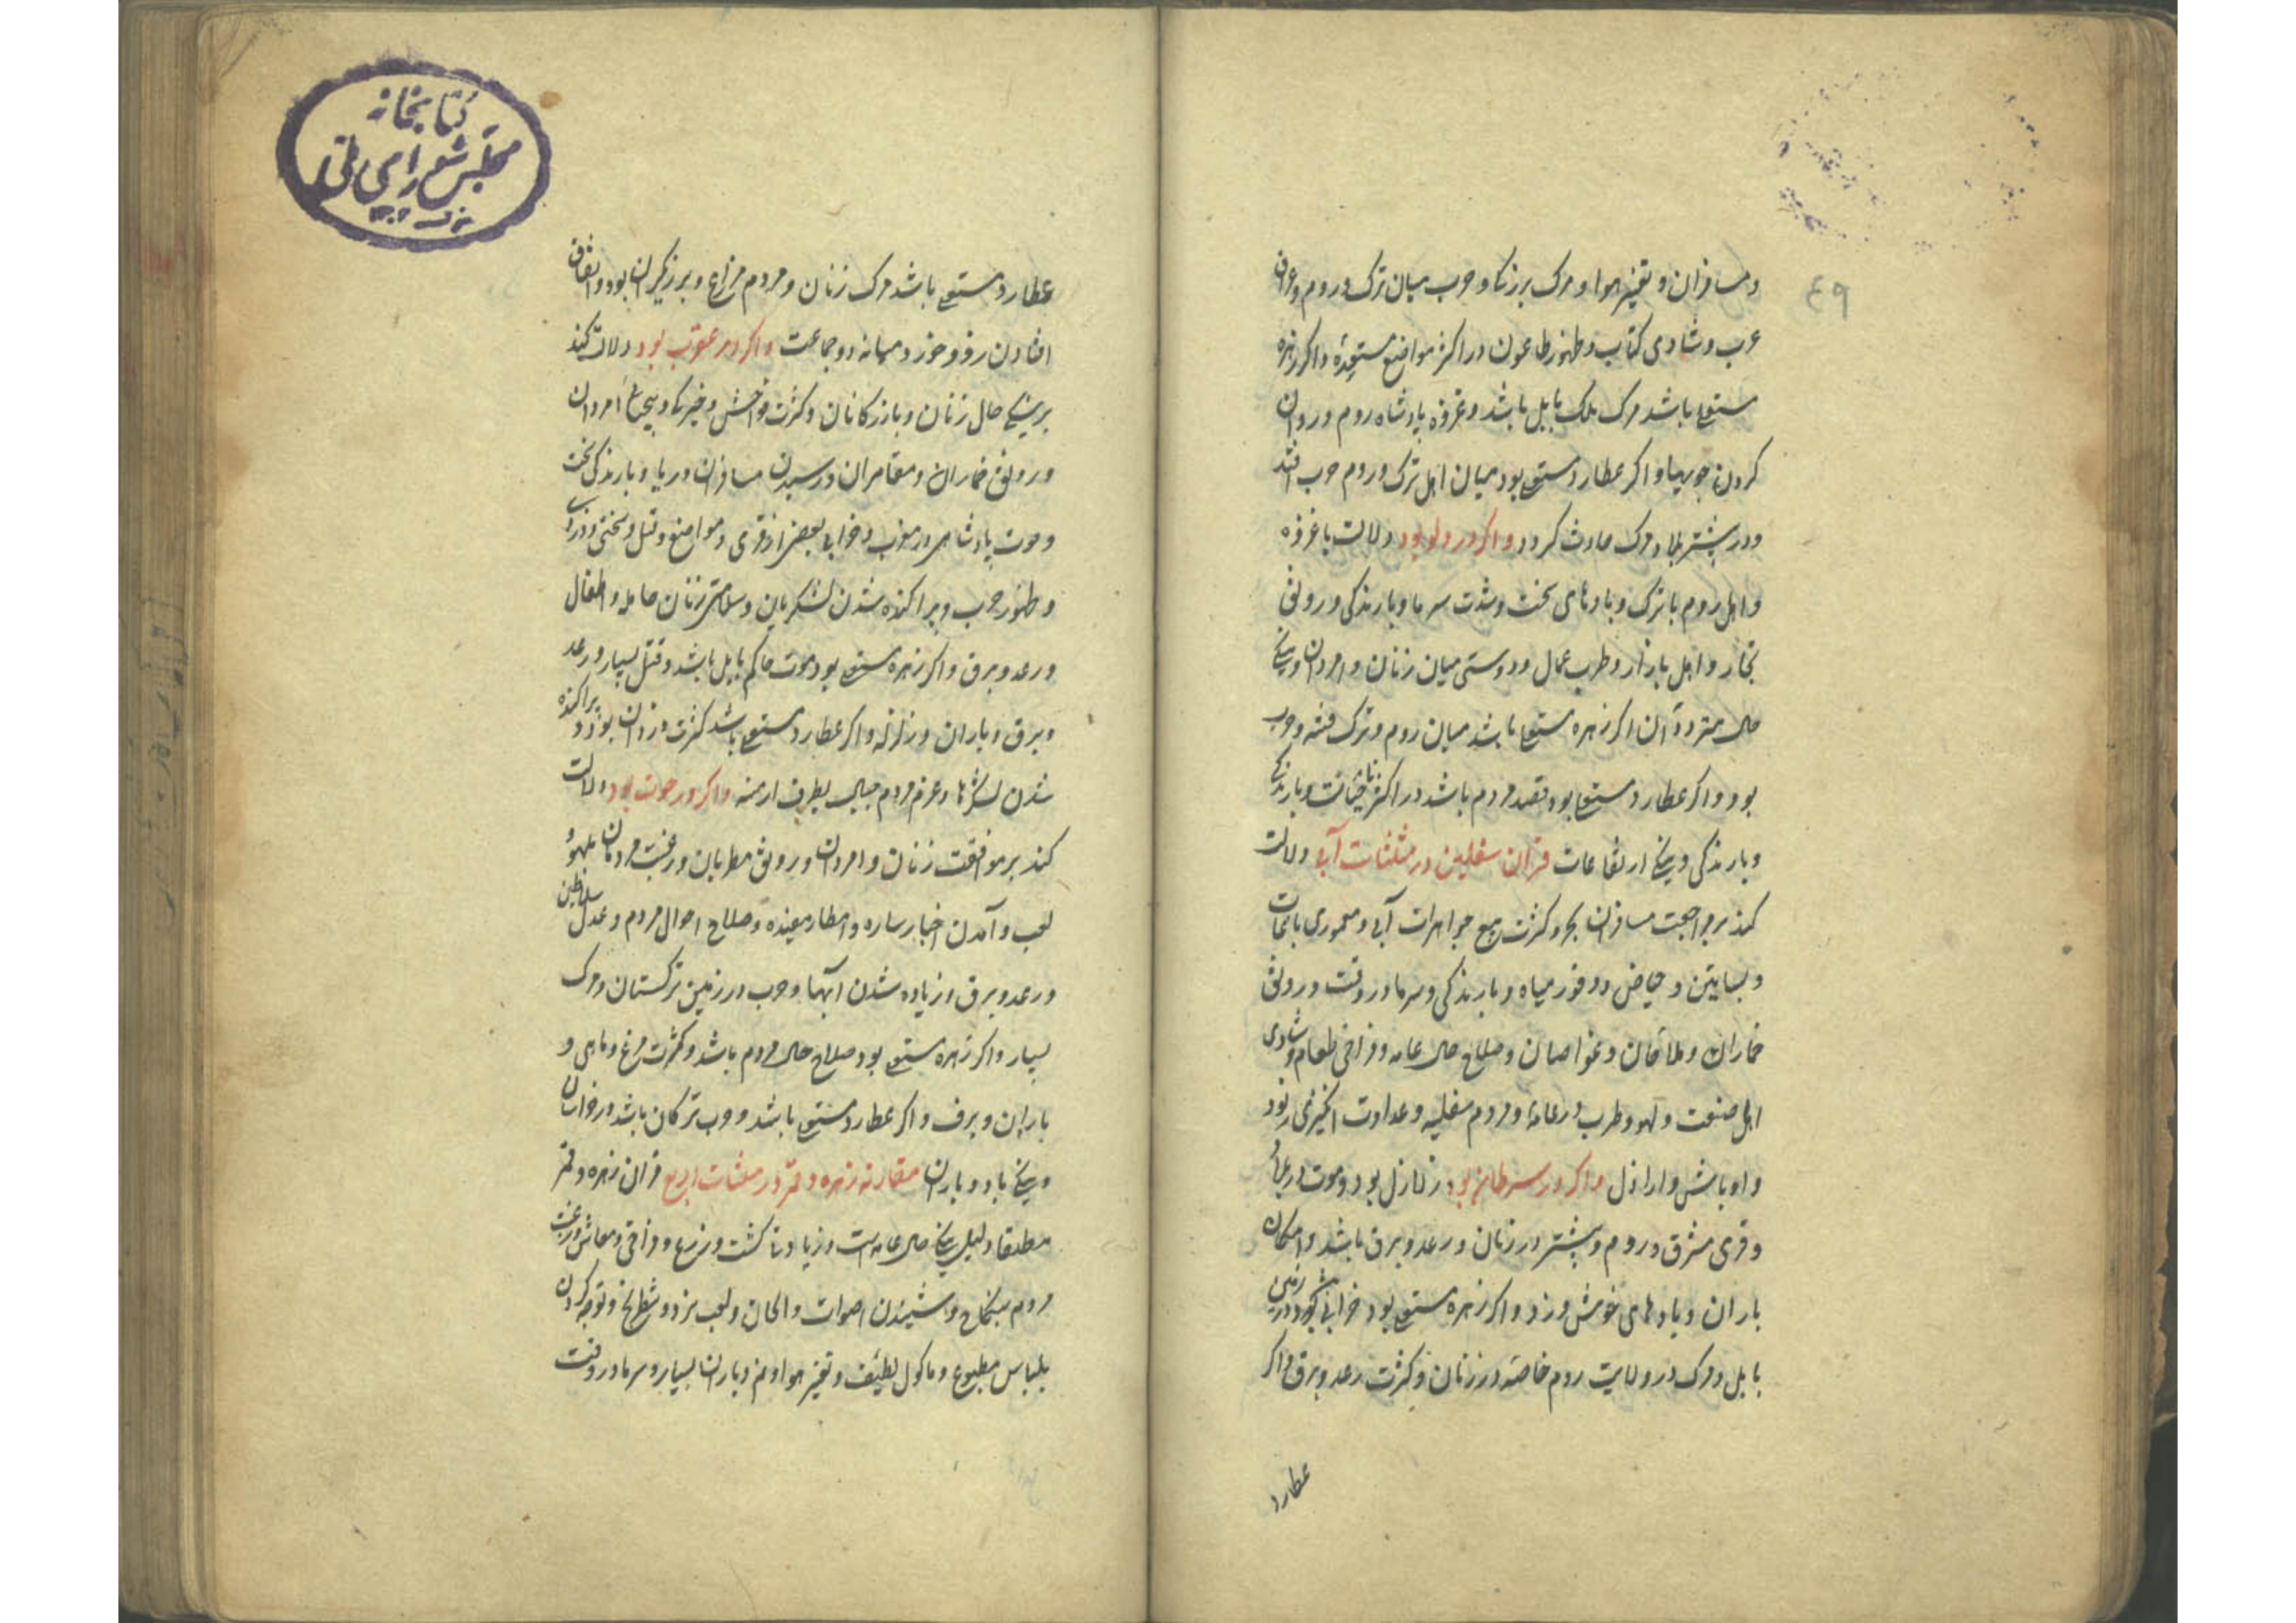 ٤٩
و مسافران و تغیر هوا و مرک بزرکا و حرب میان ترک و روم و غرق
عرب و شادی کتاب و ظهور طاعون در اکثر مواضع مستعده و اکر زهره
مستعلی باشد مرک ملک بابل باشد و غزوه پادشاه روم و روان
کردن جویها و اکر عطارد مستعلی بود میان اهل ترک و روم حرب افتد
و در بیشتر بلاد مرک حادث کردد و اکر در دلو بود دلالت با غزوه
و اهل روم با ترک و بادهای سخت و شدت سرما و بارندکی و رونق
تجار و اهل بازار و طرب عمال و دوستی میان زنان و امردان و نیکی
حال متردد آن اکر زهره مستعلی باشد میان روم و ترک فتنه و حرب
بود و اکر عطارد مستعلی بود قصد مردم باشد در اکثر خیانت و بارندکی
و بارندکی و نیکی ارتفاعات قران سفلیین در مثلثات آبی دلالت
کند بر مراجعت مسافران بحر و کثرت بیع جواهرات آبی و معموری باغات
و بساتین و حیاض و وفور میاه و بارندکی و سرما در وقت و رونق
خماران و ملاحان و غواصان و صلاح حال عامه و فراخی طعام و شادی
اهل صنعت و لهو و طرب در عامهٔ و مردم سفلیه و عداوت انکیزی رنود
و اوباش و اراذل و اکر در سرطان بود زلازل بود و موت در عربا
و قری مشرق و روم و بیشتر در زنان و رعد و برق باشد و امکان
باران و بادهای خوش وزد و اکر زهره مستعلی بود خرابی بود در زمین
بابل و مرک در ولایت روم خاصه در زنان و کثرت رعد و برق و اکر
عطارد
کتابخانه
مجلس شورای ملی
عطارد مستعلی باشد مرک زنان و مردم مزارع و برزیکران بود و اتفاق
افتادن رفو خورد میانه دو جماعت و اکر در عقرب بود دلالت کند
بر نیکی حال زنان و بازرکانان و کثرت فواحش و امردان
و رونق خماران و مقامران و رسیدن مسافران دریا و بارندکی سخت
و موت پادشاهی در مغرب و خرابی بعضی از قری و مواضع و قتل و سختی
و ظهور حرب و پراکنده شدن لشکریان و سلامتی زنان حامله و اطفال
و رعد و برق و اکر زهره مستعلی بود موت حاکم بابل باشد و قتل بسیار و رعد
و برق و باران و زلزله و اکر عطارد مستعلی باشد کثرت دزدان بود و پراکنده
شدن لشکرها و عزم مردم جبال بطرف ارمنیه و اکر در حوت بود دلالت
کند بر موافقت زنان و امردان و رونق مطربان و رغبت مردمان بلهو و
لعب و آمدن اخبار ساره و امطار مفیده و صلاح احوال مردم و عدل سلاطین
و رعد و برق و زیاده شدن آبها و حرب در زمین ترکستان و مرک
بسیار و اکر زهره مستعلی بود صلاح حال مردم باشد و کثرت مرغ و ماهی و
باران و برف و اکر عطارد مستعلی باشد و حرب ترکان باشد در خراسان
و نیکی باد و باران مقارنه زهره و قمر در مثلثات اربع قران زهره و قمر
مطلقا دلیل نیکی حال عامه است و زیادتی کشت و زرع و فراخی و معاش و رغبت
مردم بنکاح و شنیدن اصوات و الحان و لعب نرد و شطرنج و توجه کردن
بلباس مطبوع و ماکول لطیف و تغیر هوا و نم و باران بسیار و سرما در وقت